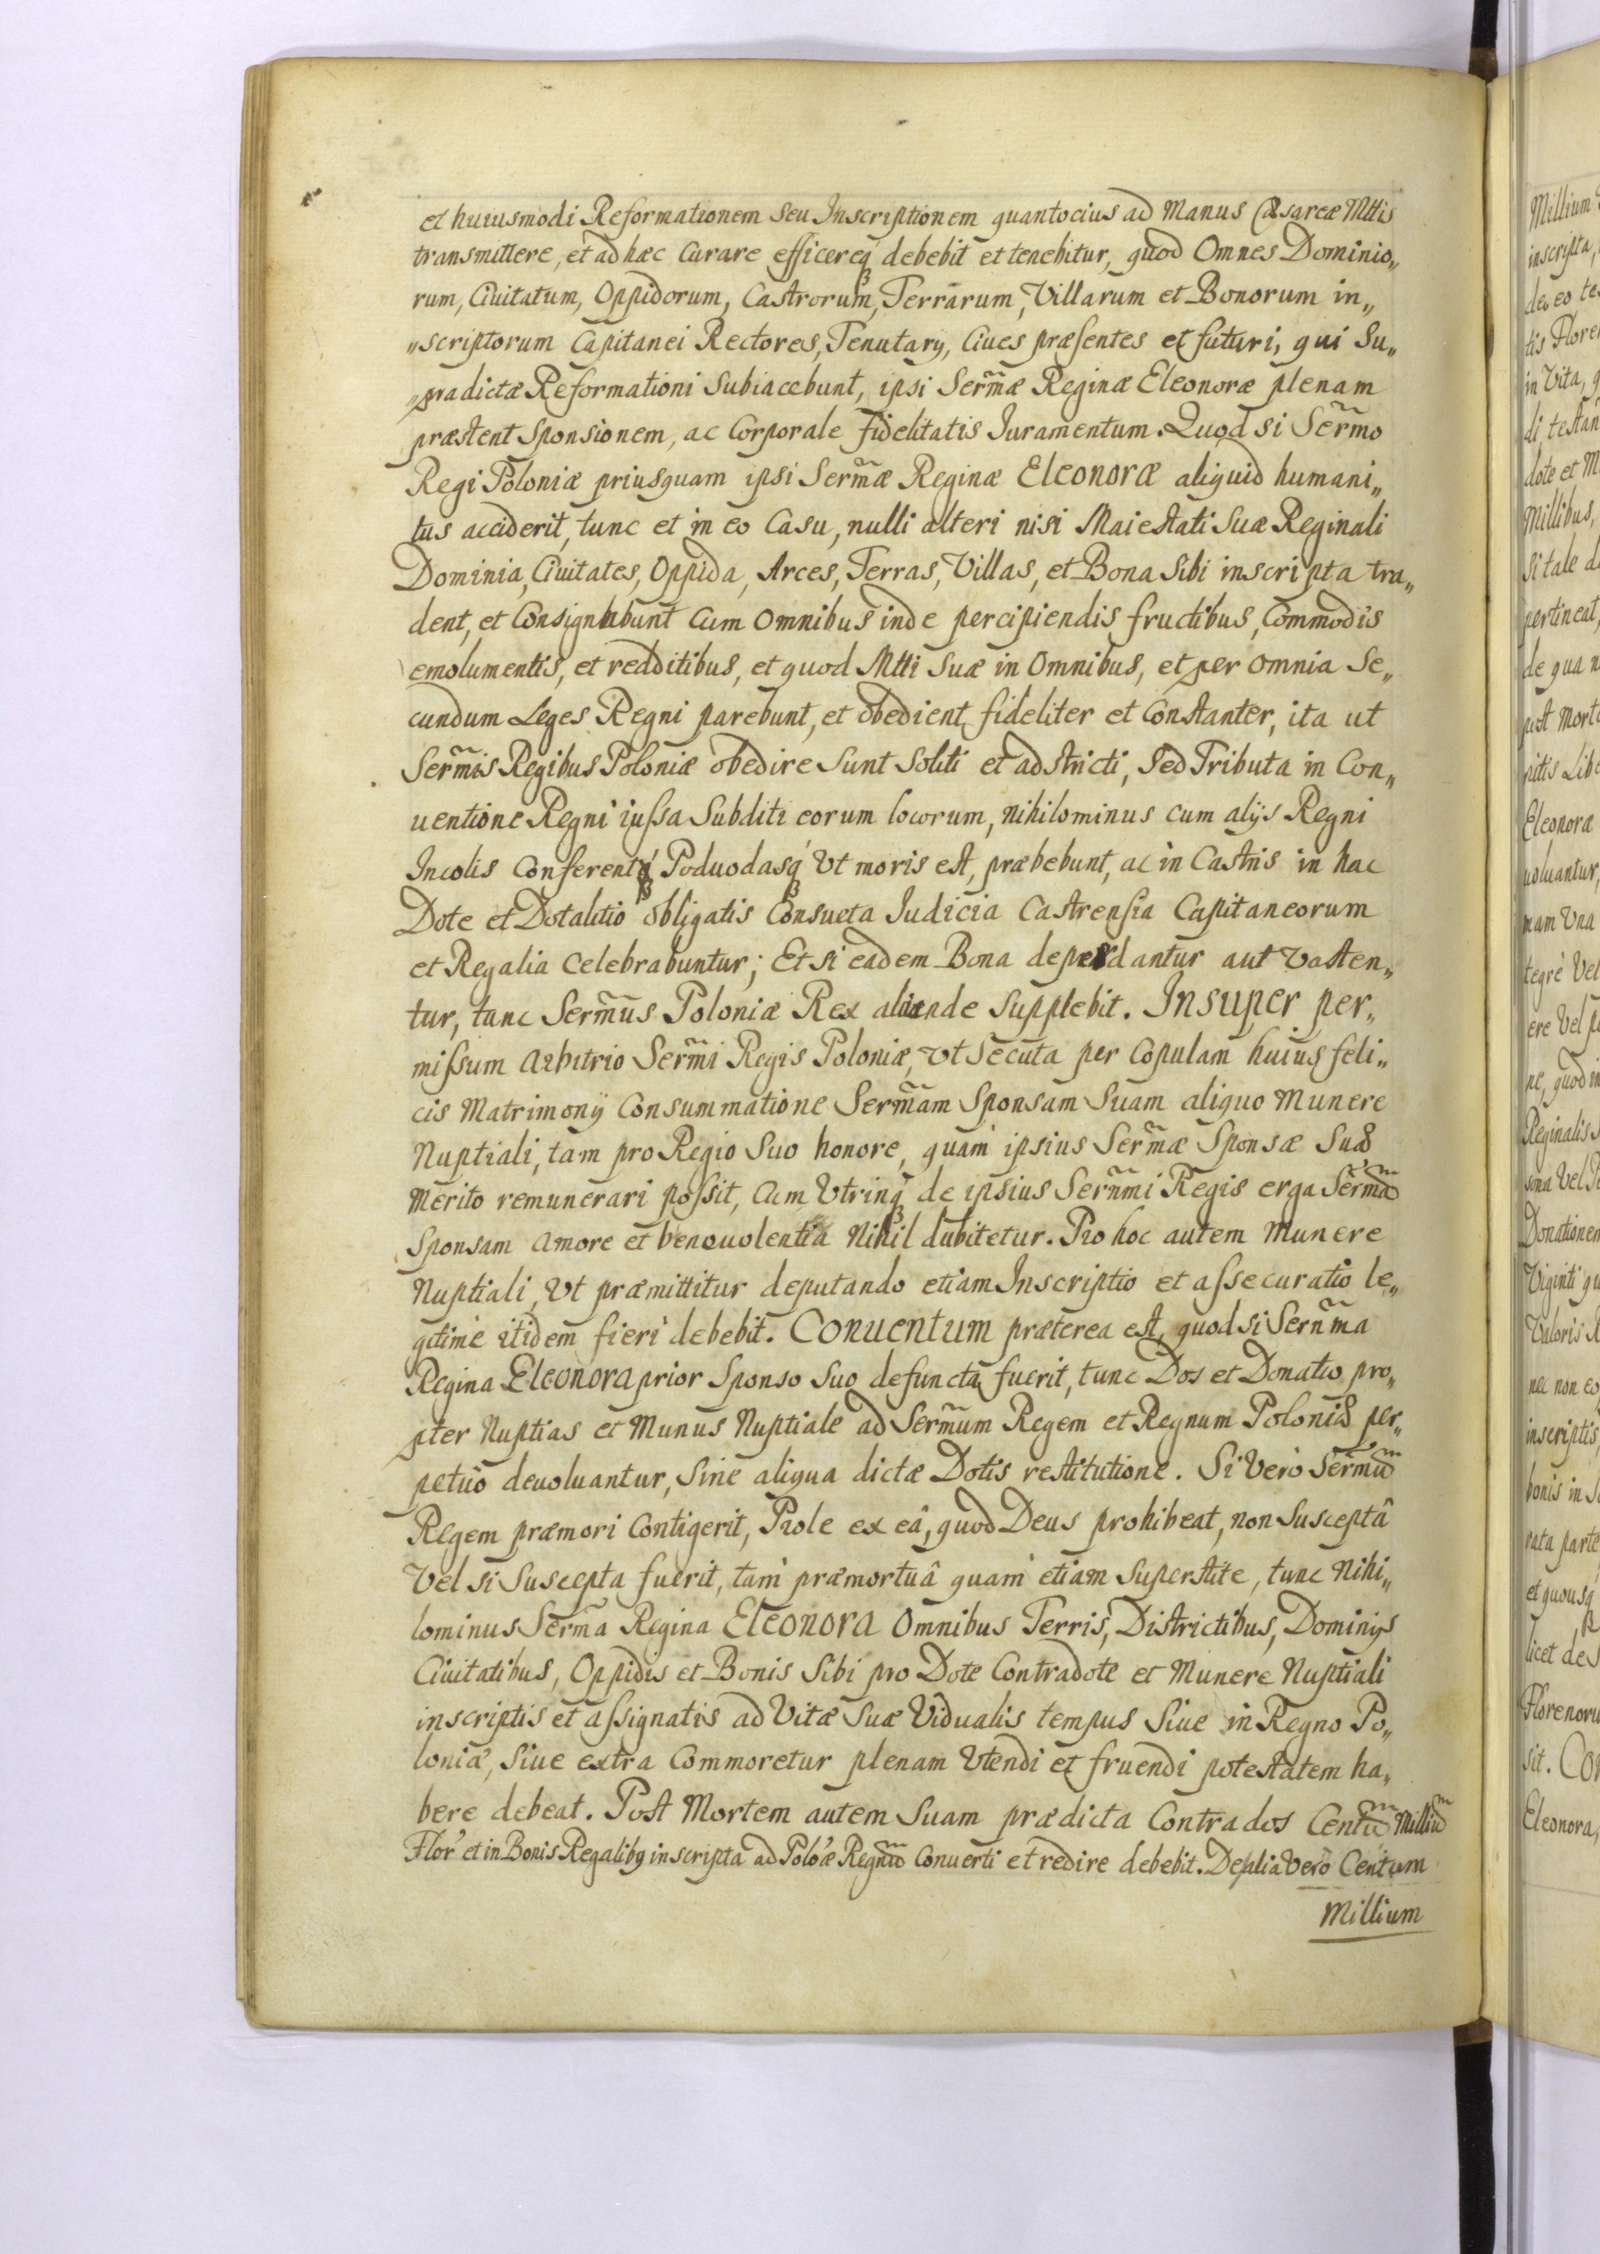 et huiusmodi Reformationem Seu Inscriptionem quantocius ad Manus Cæsareæ Mttis
transmittere, et ad hæc Curare efficereq̃ debebit et tenebitur, quod Omnes Dominio„
rum, Ciuitatum, Oppidorum, Castrorum, Terrarum, Villarum et Bonorum in„
„scriptorum Capitanei Rectores, Tenutarÿ, Ciues præsentes et futuri, qui Su„
„pradictæ Reformationi Subiacebunt, ipsi Serm̃æ Reginæ Eleonoræ plenam
præstent Sponsionem, ac Corporale fidelitatis Iuramentum. Quod si Serm̃o
Regi Poloniæ priusquam ipsi Serm̃æ Reginæ Eleonoræ aliquid humani„
tus acciderit, tunc et in eo Casu, nulli alteri nisi Maiestati Suæ Reginali
Dominia, Ciuitates, Oppida, Arces, Terras, Villas, et Bona Sibi inscripta tra„
dent, et Consignabunt Cum Omnibus inde percipiendis fructibus, Commodis
emolumentis, et redditibus, et quod Mtti Suæ in Omnibus, et per omnia Se„
cundum Leges Regni parebunt, et obedient fideliter et Constanter, ita ut
Serm̃is Regibus Poloniæ obedire Sunt Soliti et adstricti, Sed Tributa in Con„
uentione Regni iussa Subditi eorum locorum, nihilominus cum alijs Regni
Incolis Conferent, Poduodasq̃ Vt moris est, præbebunt, ac in Castris in hac
Dote et Dotalitio obligatis Consueta Iudicia Castrensia Capitaneorum
et Regalia Celebrabuntur; Et si eadem Bona deperdantur aut Vasten„
tur, tunc Serm̃us Poloniæ Rex aliunde Supplebit. Insuper per„
missum Arbitrio Serm̃i Regis Poloniæ, Vt Secuta per Copulam huius feli„
cis Matrimonÿ Consummatione Serm̃am Sponsam Suam aliquo Munere
Nuptiali, tam pro Regio Suo honore, quam ipsius Serm̃æ Sponsæ Suæ
Merito remunerari possit, Cum Vtrinq̃ de ipsius Serñmi Regis erga Serm̃ã
Sponsam Amore et beneuolentia Nihil dubitetur. Pro hoc autem Munere
Nuptiali, Vt præmittitur deputando etiam Inscriptio et assecuratio le„
gitimè itidem fieri debebit. Conuentum præterea est, quod si Serñma
Regina Eleonora prior Sponso Suo defuncta fuerit, tunc Dos et Donatio pro„
pter Nuptias et Munus Nuptiale ad Serm̃um Regem et Regnum Poloniæ per„
petuò deuoluantur, Sine aliqua dictæ Dotis restitutione. Si Verò Serm̃ũ
Regem præmori Contigerit, Prole ex eâ, quod Deus prohibeat, non Susceptâ
Vel si Suscepta fuerit, tam præmortuâ quam etiam Superstite, tunc Nihi„
lominus Serm̃a Regina Eleonora Omnibus Terris, Districtibus, Dominÿs
Ciuitatibus, Oppidis et Bonis Sibi pro Dote Contradote et Munere Nuptiali
inscriptis et assignatis ad Vitæ Suæ Vidualis tempus Siue in Regno Po„
loniæ, Siue extra Commoretur plenam Vtendi et fruendi potestatem ha„
bere debeat. Post Mortem autem Suam prædicta Contrados Centũ Milliũ
Flor' et in Bonis Regalibq inscripta ad Polo'æ Regnũ Conuerti et redire debebit. De alia Verò Centum
Millium
Millium
inscripta,
de eo te
tis Flore
in Vita, q
di, testan
dote et M
Millibus,
Si tale d
pertineat,
de qua n
post Morte
ritis Libe
Eleonora
uoluantur,
mam Vna
tegrè Vel
ere Vel p
ne, quod in
Reginalis S
sona Vel P
Donationem
Viginti qu
Valoris
nec non eo
inscriptis
bonis in S
rata parte
et quousq̃
licet des
Florenoru
sit. Con
Eleonora,